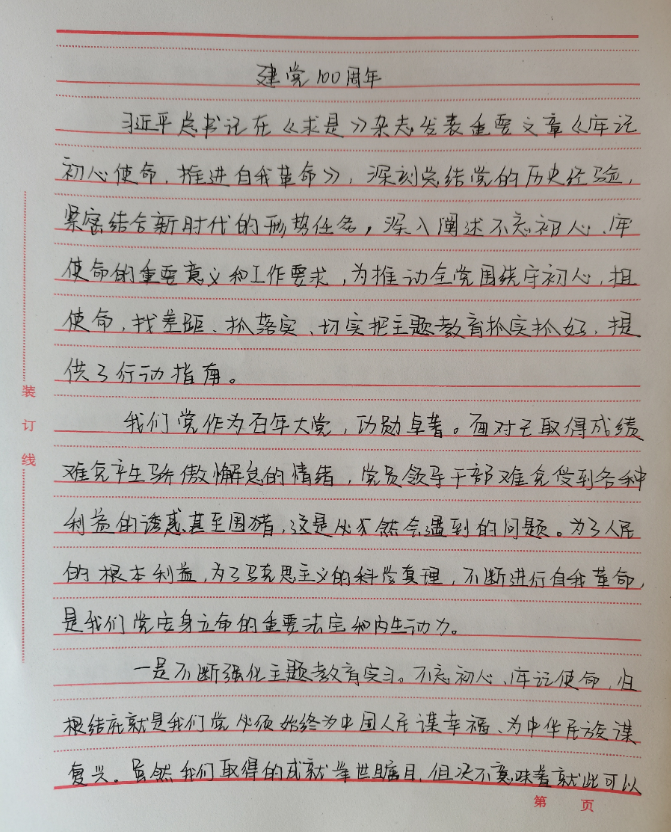 建党100周年
习近平总书记在《求是》杂志发表重要文章《牢记
初心使命,推进自我革命》,深刻总结党的历史经验,
紧密结合新时代的形势任务,深入阐述不忘初心、牢
使命的重要意义和工作要求,为推动全党围绕守初心,担
使命,找差距、抓落实、切实把主题教育抓实抓好,提
供了行动指南。
我们党作为百年大党,功勋卓著。面对已取得成绩
难免产生骄傲懈怠的情绪,党员领导干部难免受到各种
利益的诱惑甚至围猎,这是必然会遇到的问题。为了人民
的根本利益,为了马克思主义的科学真理,不断进行自我革命,
是我们党安身立命的重要法宝和内生动力。
一是不断强化主题教育实习。不忘初心、牢记使命,归
根结底就是我们党必须始终为中国人民谋幸福、为中华民族谋
复兴。虽然我们取得的成就举世瞩目,但决不意味着就此可以
装订线
第 页